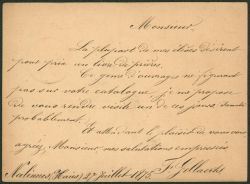 Monsieur,
La plupart de nos élèves désirent
pour prix un livre de prières.
Ce genre d'ouvrages ne figurant
pas sur votre catalogue, je me propose
de vous rendre visite un de ces jours
probablement.
Et attendant le plaisir de vous voir
agréez, Monsieur mes salutations empressées
27 Juillet 1875.